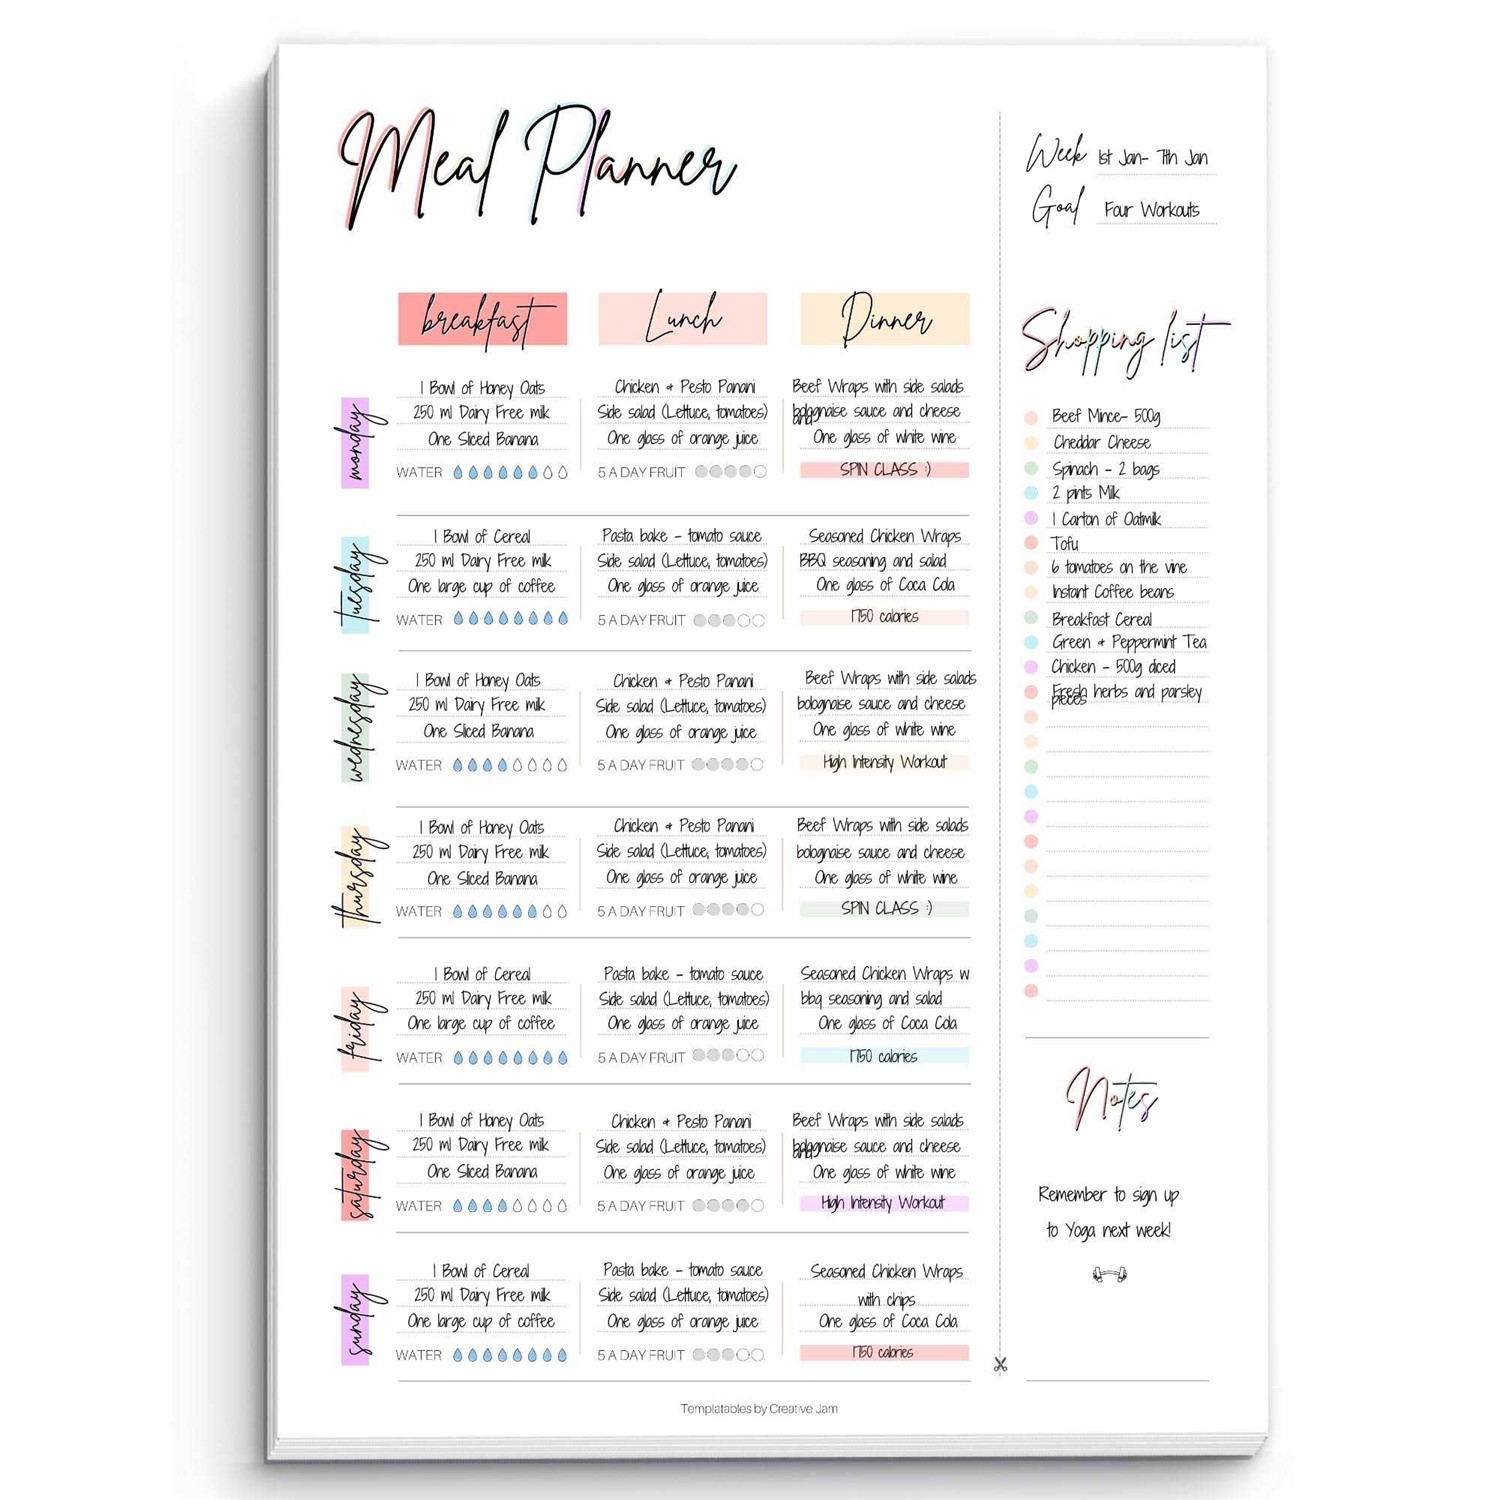 Meal Planner
Week 1st Jan- 7th Jan
Goal Four Workouts
breakfast Lunch Dinner
monday
1 Bowl of Honey Oats
250 ml Dairy Free milk
One Sliced Banana
WATER
Chicken + Pesto Panani
Side salad (Lettuce, tomatoes)
One glass of orange juice
5 A DAY FRUIT
Beef Wraps with side salads
bolognaise sauce and cheese
One glass of white wine
SPIN CLASS :)
tuesday
1 Bowl of Cereal
250 ml Dairy Free milk
One large cup of coffee
WATER
Pasta bake - tomato sauce
Side salad (Lettuce, tomatoes)
One glass of orange juice
5 A DAY FRUIT
Seasoned Chicken Wraps
BBQ seasoning and salad
One glass of Coca Cola
1750 calories
wednesday
1 Bowl of Honey Oats
250 ml Dairy Free milk
One Sliced Banana
WATER
Chicken + Pesto Panani
Side salad (Lettuce, tomatoes)
One glass of orange juice
5 A DAY FRUIT
Beef Wraps with side salads
bolognaise sauce and cheese
One glass of white wine
High Intensity Workout
thursday
1 Bowl of Honey Oats
250 ml Dairy Free milk
One Sliced Banana
WATER
Chicken + Pesto Panani
Side salad (Lettuce, tomatoes)
One glass of orange juice
5 A DAY FRUIT
Beef Wraps with side salads
bolognaise sauce and cheese
One glass of white wine
SPIN CLASS :)
friday
1 Bowl of Cereal
250 ml Dairy Free milk
One large cup of coffee
WATER
Pasta bake - tomato sauce
Side salad (Lettuce, tomatoes)
One glass of orange juice
5 A DAY FRUIT
Seasoned Chicken Wraps w
bbq seasoning and salad
One glass of Coca Cola
1750 calories
saturday
1 Bowl of Honey Oats
250 ml Dairy Free milk
One Sliced Banana
WATER
Chicken + Pesto Panani
Side salad (Lettuce, tomatoes)
One glass of orange juice
5 A DAY FRUIT
Beef Wraps with side salads
bolognaise sauce and cheese
One glass of white wine
High Intensity Workout
sunday
1 Bowl of Cereal
250 ml Dairy Free milk
One large cup of coffee
WATER
Pasta bake - tomato sauce
Side salad (Lettuce, tomatoes)
One glass of orange juice
5 A DAY FRUIT
Seasoned Chicken Wraps
with chips
One glass of Coca Cola
1750 calories
Shopping list
Beef Mince- 500g
Cheddar Cheese
Spinach - 2 bags
2 pints Milk
1 Carton of Oatmilk
Tofu
6 tomatoes on the vine
Instant Coffee beans
Breakfast Cereal
Green + Peppermint Tea
Chicken - 500g diced
pieces
Fresh herbs and parsley
Notes
Remember to sign up
to Yoga next week!
Templatables by Creative Jam